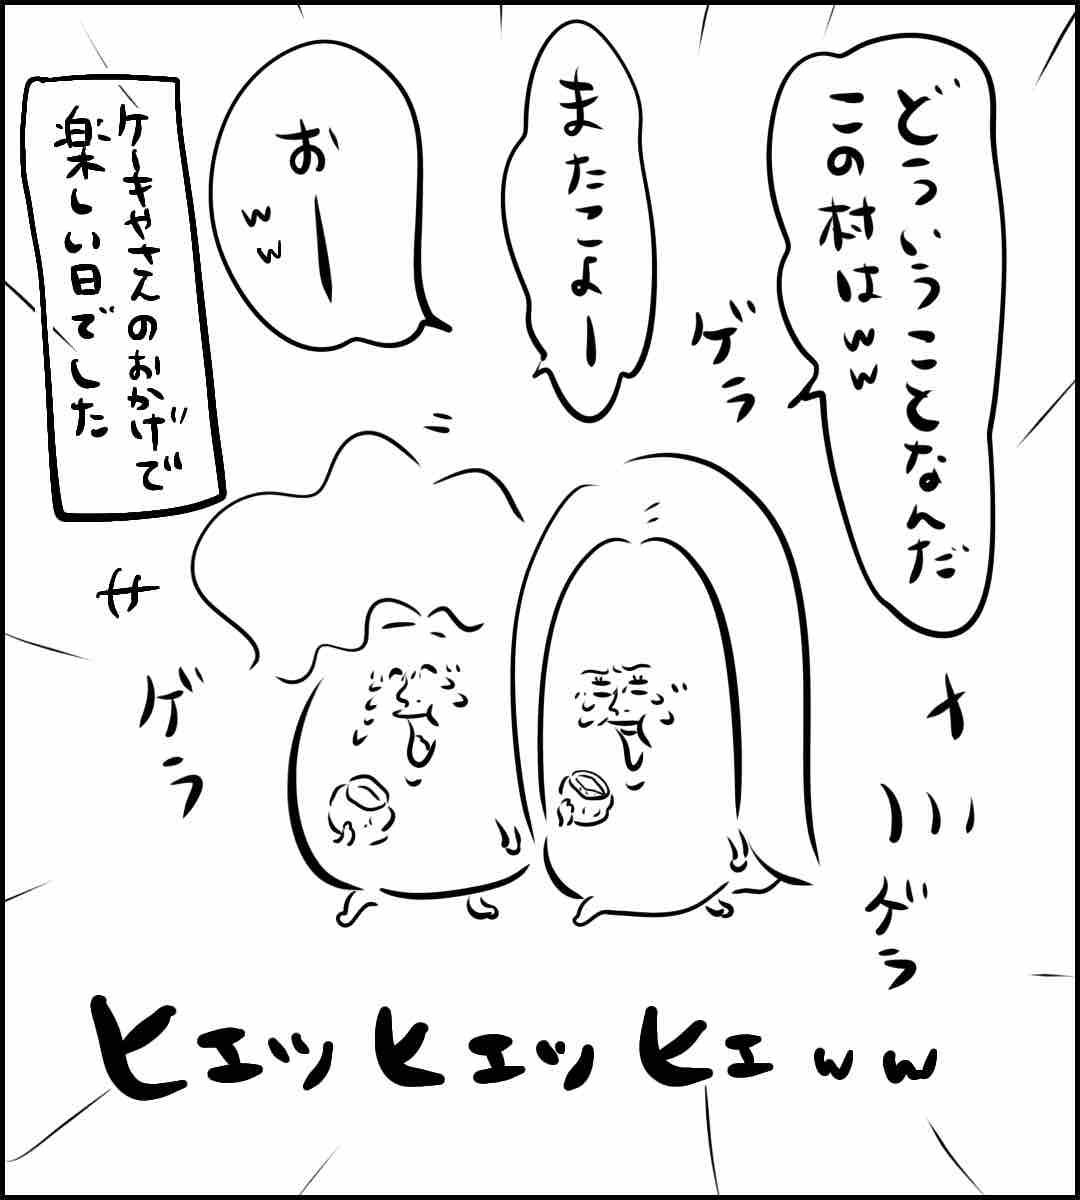 どういうことなんだ
この村はww
またこよー
おーww
ケーキやさんのおかげで
楽しい日でした
ゲラ
ゲラ
キャハハハ
ゲラ
ヒエッヒエッヒエww